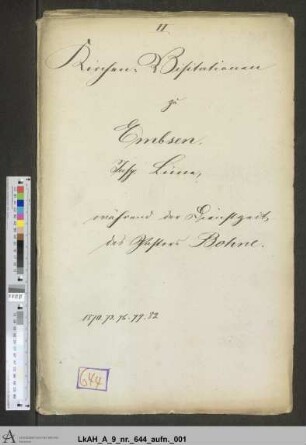 II.
Kirchen-Visitationen
zu
Embsen,
Insp. Lüne,
während der Dienstzeit
des Pastors Bohne.
644
LkAH_A_9_nr._644_aufn._001